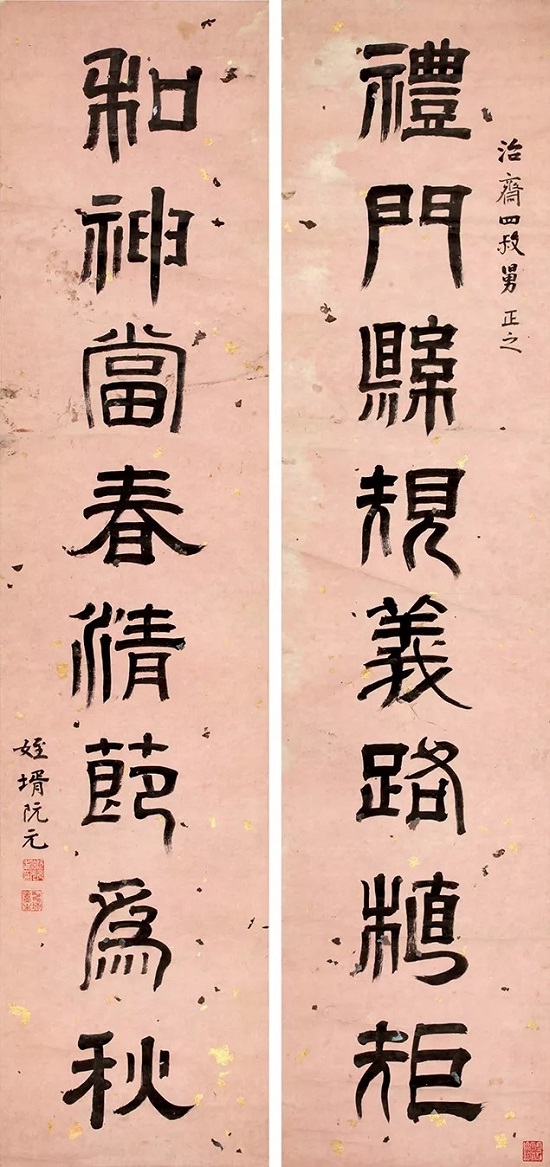 治齋四叔舅正之
禮門縣規義路植矩
和神當春清節爲秋
姪壻阮元